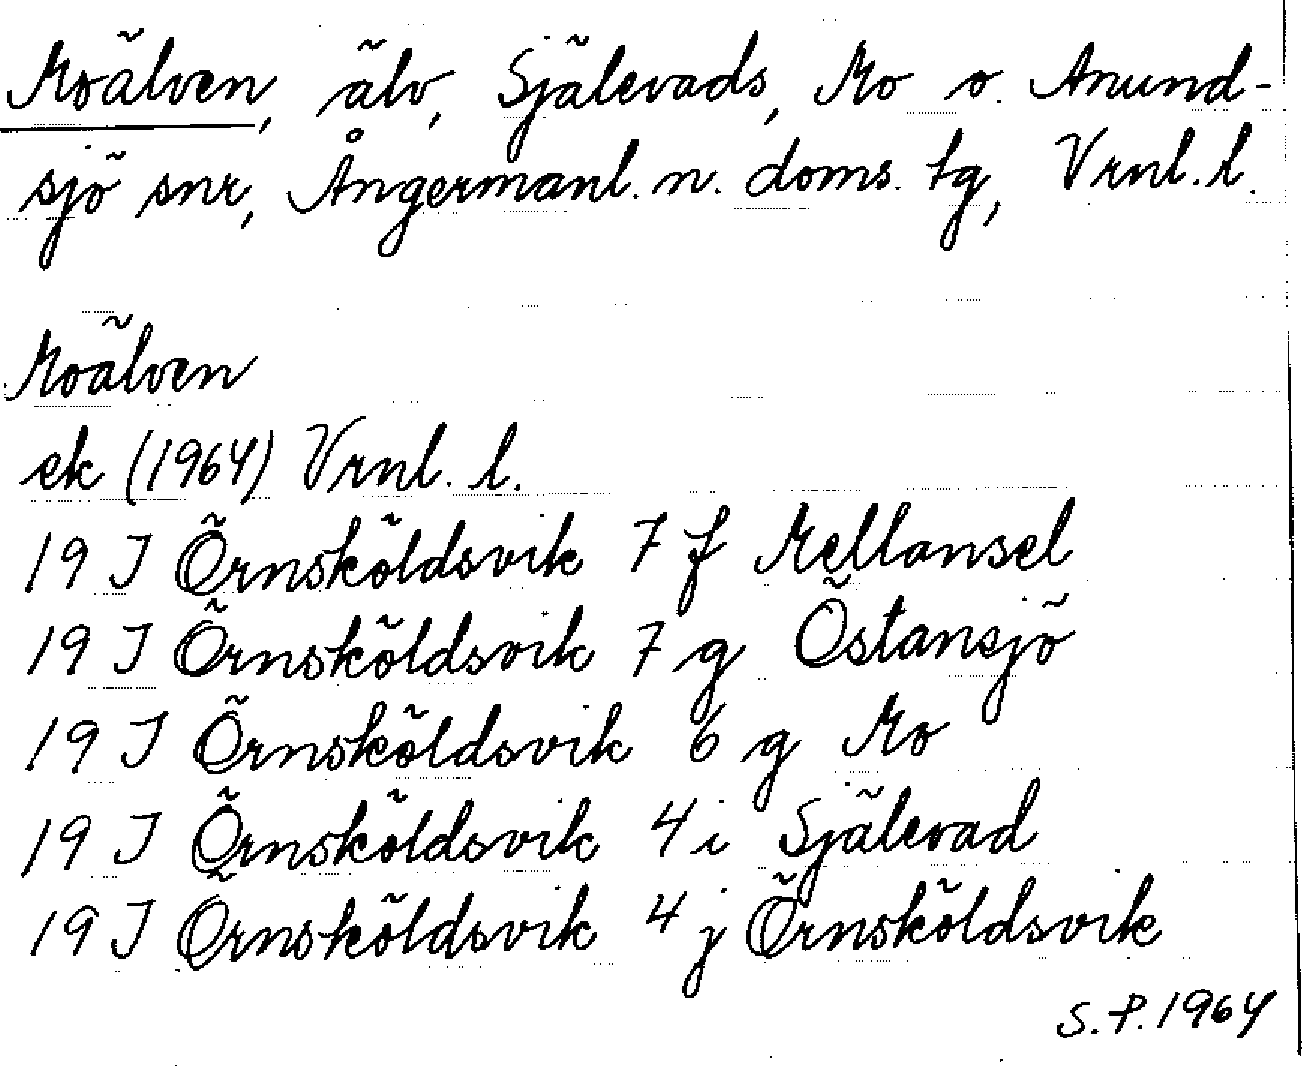 Moälven, älv, Själevads, Mo o. Anund-
sjö snr, Ångermanl. n. doms. tg, Vrnl. l.
Moälven
ek (1964) Vrnl. l.
19 J Örnsköldsvik 7 f Mellansel
19 J Örnsköldsvik 7 g Östansjö
19 J Örnsköldsvik 6 g Mo
19 J Örnsköldsvik 4 i Själevad
19 J Örnsköldsvik 4 j Örnsköldsvik
S.P. 1964